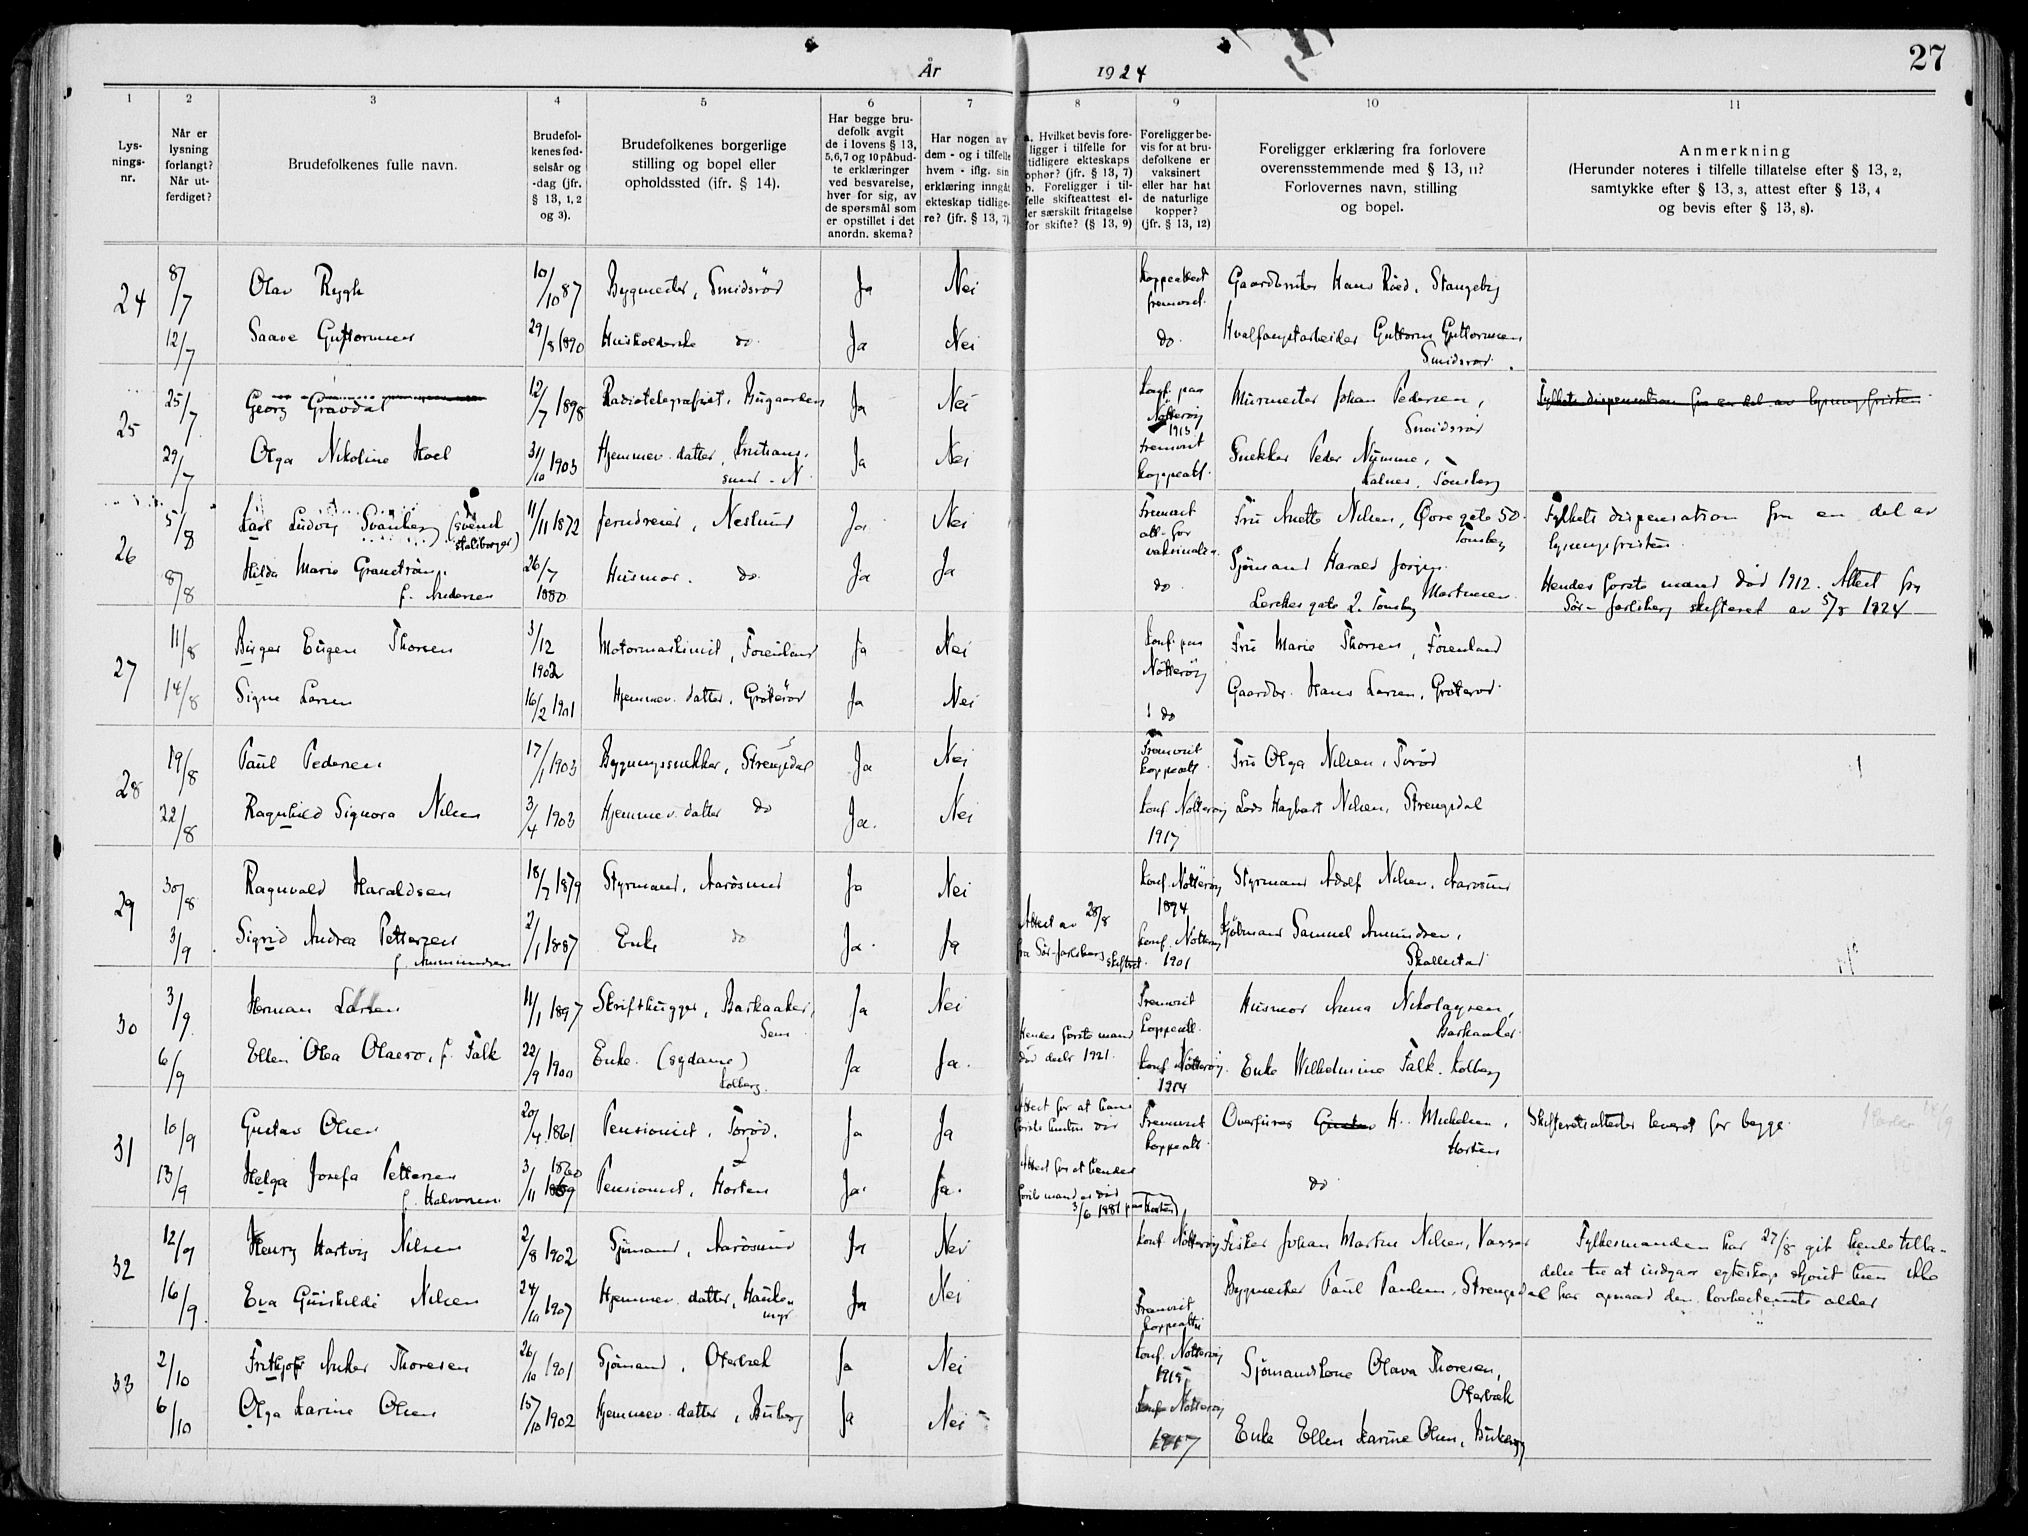 27
År 1924
1 2 3 4 5 6 7 8 9 10 11
Lysningsnr.
Når er lysning forlangt? Når utferdiget?
Brudefolkenes fulle navn.
Brudefolkenes fødselsår og -dag (jfr. § 13, 1, 2 og 3).
Brudefolkenes borgerlige stilling og bopel eller opholdssted (jfr. § 14).
Har begge brudefolk avgit de i lovens § 13, 5, 6, 7 og 10 påbudte erklæringer ved besvarelse, hver for sig, av de spørsmål som er opstillet i det anordn. skema?
Har nogen av dem - og i tilfelle hvem - iflg. sin erklæring inngåt ekteskap tidligere? (jfr. § 13, 7)
a. Hvilket bevis foreligger i tilfelle for tidligere ekteskaps ophør? (jfr. § 13, 7) b. Foreligger i tilfelle skifteattest eller særskilt fritagelse for skifte? (§ 13, 9)
Foreligger bevis for at brudefolkene er vaksinert eller har hat de naturlige kopper? (jfr. § 13, 12)
Foreligger erklæring fra forlovere overensstemmende med § 13, 11? Forlovernes navn, stilling og bopel.
Anmerkning (Herunder noteres i tilfelle tillatelse efter § 13, 2, samtykke efter § 13, 3, attest efter § 13, 4 og bevis efter § 13, 8).
24 8/7 Olav Rygh 10/10 87 Bygmester, Smidsrød Ja Nei koppeattest fremvist. Gaardbruker Hans Röed, Stangeby
12/7 Saave Guttormsen 29/8 1890 Husholderske do. Ja Nei do. Hvalfangstarbeider Guttorm Guttormsen Smidsrød.
25 25/7 Georg Gravdal 12/7 1898 Radiotelegrafist, Bugaarden Ja Nei konf. paa Nötterøy 1913 Murmester Johan Pedersen, Smidsrød Fylkets dispensation fra en del av lysningsfristen
29/7 Olga Nikoline Hoel 31/10 1903 Hjemmev. datter, Kristiansund - N Ja Nei fremvist koppeatt. Snekker Peder Numme, Kalnes, Tönsberg
26 5/8 Karl Ludvig Svanberg (svensk statsborger) 11/11 1872 Jerndreier, Nesbund Ja Nei Fremvist att. for vaksination Fru Anette Nilsen, Øvregate 50. Tönsberg Fylkets dispensation fra en del av lysningsfristen.
8/8 Hilda Marie Granström, f. Andersen 26/7 1880 Husmor. do. Ja Ja do. Sjømand Harald Jørgen Martinsen Lerches gate 2. Tönsberg Hendes første mand död 1912. Attest fra Sör-Jarlsberg skifteret av 5/8 1924
27 11/8 Birger Eugen Thorsen 3/12 1902 Motormaskinist, Föienland Ja Nei konf. paa Nötterøy Fru Marie Thorsen, Föienland
14/8 Signe Larsen 16/2 1901 Hjemmev. datter, Gröterød Ja Nei do Gaardbr. Hans Larsen, Gröterød.
28 19/8 Paul Pedersen 17/1 1903 Bygningssnekker, Strengsdal Ja Nei Fremvist koppeatt. Fru Olga Nilsen, Torød
22/8 Ragnhild Signora Nilsen 3/4 1903 Hjemmev. datter do Ja. Nei konf. Nötterøy 1917 Lods Hagbart Nilsen, Strengsdal
29 30/8 Ragnvald Haraldsen 18/7 1879 Styrmand, Aarösund Ja Nei konf. Nötterøy 1894 Styrmand Adolf Nilsen, Aarösund
3/9 Sigrid Andrea Pettersen f. Ammundsen 2/1 1887 Enke do Ja. Ja Attest av 28/8 fra Sör-Jarlsberg skifteret. konf. Nötterøy 1901 Sjömand Samuel Amundsen, Skallestad
30 3/9 Herman Larsen 11/1 1897 Skrifthugger, Barkaaker, Sem Ja Nei Fremvist koppeatt. Husmor Anna Nikolaysen, Barkaaker.
6/9 Ellen Olea Olavsro, f. Falk 22/9 1900 Enke. (sydame) Kolberg. Ja Ja. Hendes første mand död decbr 1921. konf. Nötterøy. 1914 Enke Wilhelmine Falk. Kolberg
31 10/9 Gustav Olsen 20/4 1861 Pensionist, Torød. Ja Ja Attest for at hans første hustru död Fremvist koppeatt. Overfyrb. H. Mikelsen, Horten Skifteretsattester levert for begge.
13/9 Helga Josefa Pettersen f. Halvorsen 3/11 1860 Pensionist, Horten Ja. Ja. Attest for at hendes første mand er död 3/6 1881 paa Horten) do
32 12/9 Henry Hartvig Nilsen 2/8 1902 Sjömand, Aarösund Ja Nei konf. Nötterøy Fisker Johan Martin Nilsen, Vasser Fylkesmanden har 27/8 git hende tilla-
16/9 Eva Gunhilde Nilsen 24/10 1907 Hjemmev. datter, Haukemyr Ja Nei Fremvist koppeattest Bygmester Paul Paulsen, Strengsdal delse til at indgaa egteskap skjønt hun ikke har opnaad den lovbestemte alder
33 2/10 Frithjof Anker Thoresen 26/10 1901 Sjömand, Oterbæk Ja Nei konf. Nötterøy 1915 Sjömandskone Olava Thoresen, Oterbæk
6/10 Olga Karine Olsen 15/10 1902 Hjemmev. datter, Buberg Ja Nei konf. Nötterøy 1917 Enke Ellen Karine Olsen, Buberg